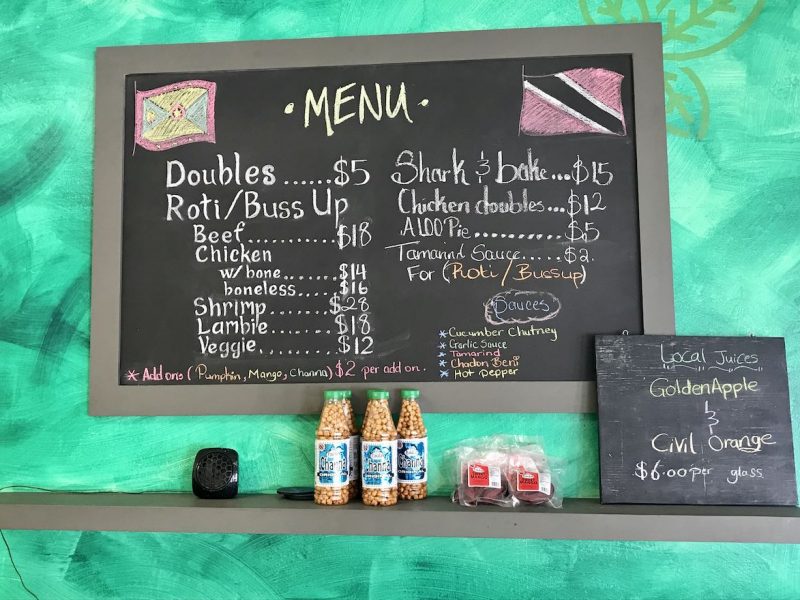 MENU
Doubles ...... $5
Roti/Buss Up
Beef .......... $18
Chicken
w/bone ... $14
boneless ... $16
Shrimp ........ $28
Lambie ........ $18
Veggie ........ $12
* Add ons (Pumpkin, Mango, Channa) $2 per add on.
Shark & bake ... $15
Chicken doubles ... $12
ALOO Pie .......... $5
Tamarind Sauce ..... $2.
For (Roti / Bussup)
Sauces
* Cucumber Chutney
* Garlic Sauce
* Tamarind
* Chadon Beni
* Hot Pepper
Local Juices
Golden Apple
&
Civil Orange
$6.00 per glass
Channa
Channa
Channa